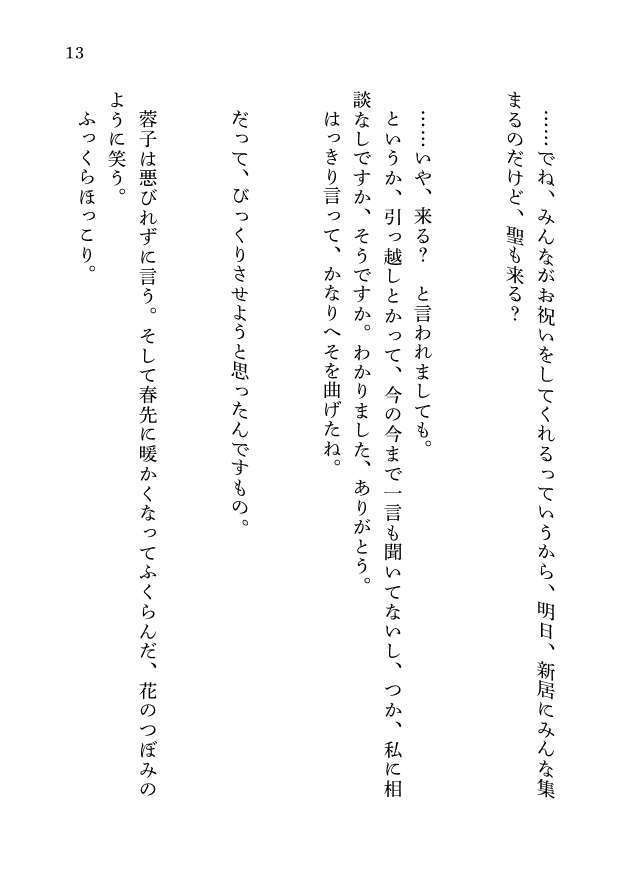 13
……でね、みんながお祝いをしてくれるっていうから、明日、新居にみんな集
まるのだけど、聖も来る？
……いや、来る？　と言われましても。
というか、引っ越しとかって、今の今まで一言も聞いてないし、つか、私に相
談なしですか、そうですか。わかりました、ありがとう。
はっきり言って、かなりへそを曲げたね。
だって、びっくりさせようと思ったんですもの。
蓉子は悪びれずに言う。そして春先に暖かくなってふくらんだ、花のつぼみの
ように笑う。
ふっくらほっこり。